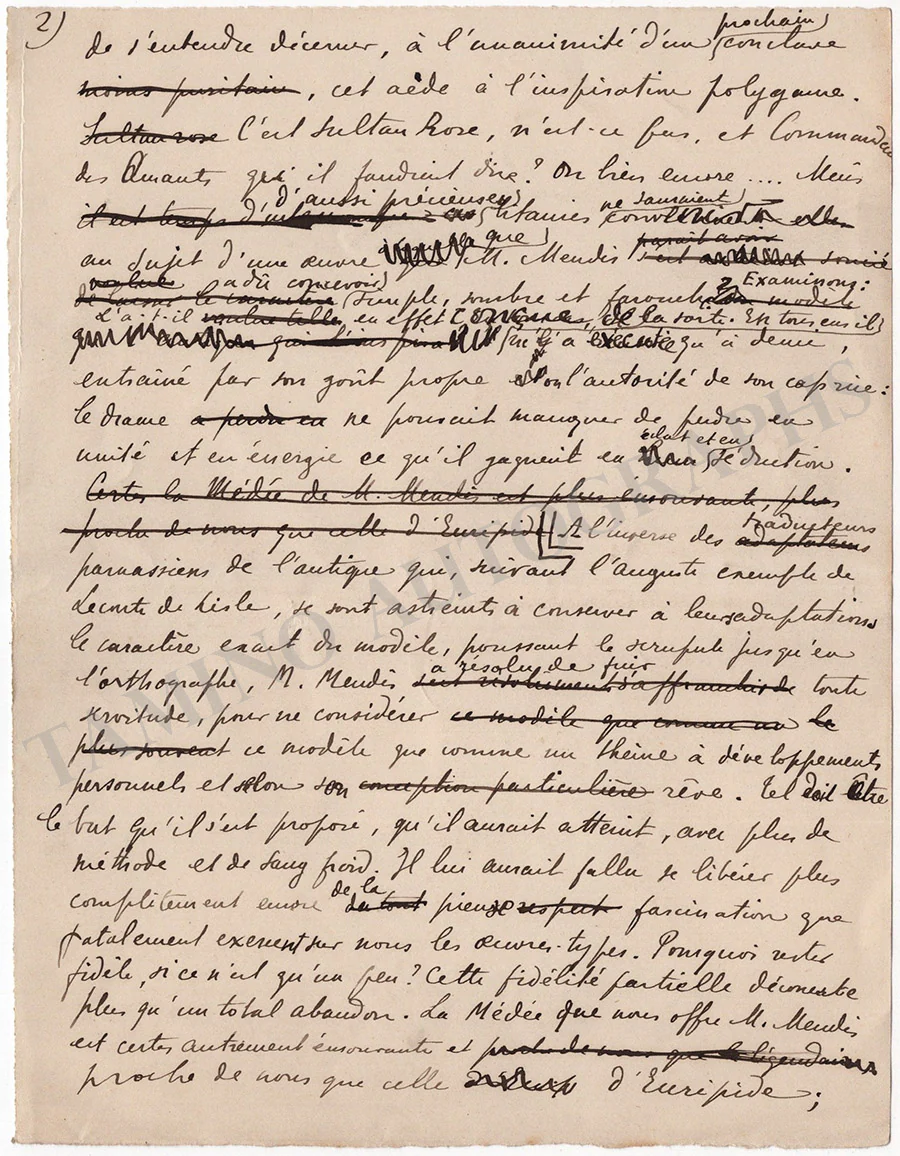 2)
prochain
de s'entendre décerner, à l'unanimité d'un conclave
moins puritain, cet aède à l'inspiration polygame.
Sultan rose C'est Sultan Rose, n'est-ce pas, et Commandeur
des Amants qu'il faudrait dire? Ou bien encore .... Mais
d'aussi précieuses ne sauraient
il est temps d' litanies
au sujet d'une œuvre que M. Mendès
voulue a dû concevoir Examinons:
le caractère simple, sombre et farouche modèle
L'a-t-il voulue telle en effet de la sorte. En tous cas il
ne l'a exécutée qu'à demi,
entraîné par son goût propre l'autorité de son caprice:
le drame a perdu en ne pouvait manquer de perdre en
éclat et en
unité et en énergie ce qu'il gagnait en séduction.
Certes la Médée de M. Mendès est plus émouvante, plus
traducteurs
proche de nous que celle d'Euripide A l'inverse des adaptateurs
parnassiens de l'antique qui, suivant l'auguste exemple de
Leconte de Lisle, se sont astreints à conserver à leurs adaptations
le caractère exact du modèle, poussant le scrupule jusqu'en
a résolu de fuir
l'orthographe, M. Mendès s'est résolument affranchi de toute
servitude, pour ne considérer ce modèle que comme un le
plus souvent ce modèle que comme un thème à développements
personnels et selon son conception particulière rêve. Tel doit être
le but qu'il s'est proposé, qu'il aurait atteint, avec plus de
méthode et de sang froid. Il lui aurait fallu se libérer plus
de la
complètement encore du tout pieuse respect fascination que
fatalement exercent sur nous les œuvres-types. Pourquoi rester
fidèle, si ce n'est qu'un peu? Cette fidélité partielle déconcerte
plus qu'un total abandon. La Médée que nous offre M. Mendès
est certes autrement émouvante et proche de nous que la légendaire
proche de nous que celle d'Euripide;
TAMINO AUTOGRAPHS